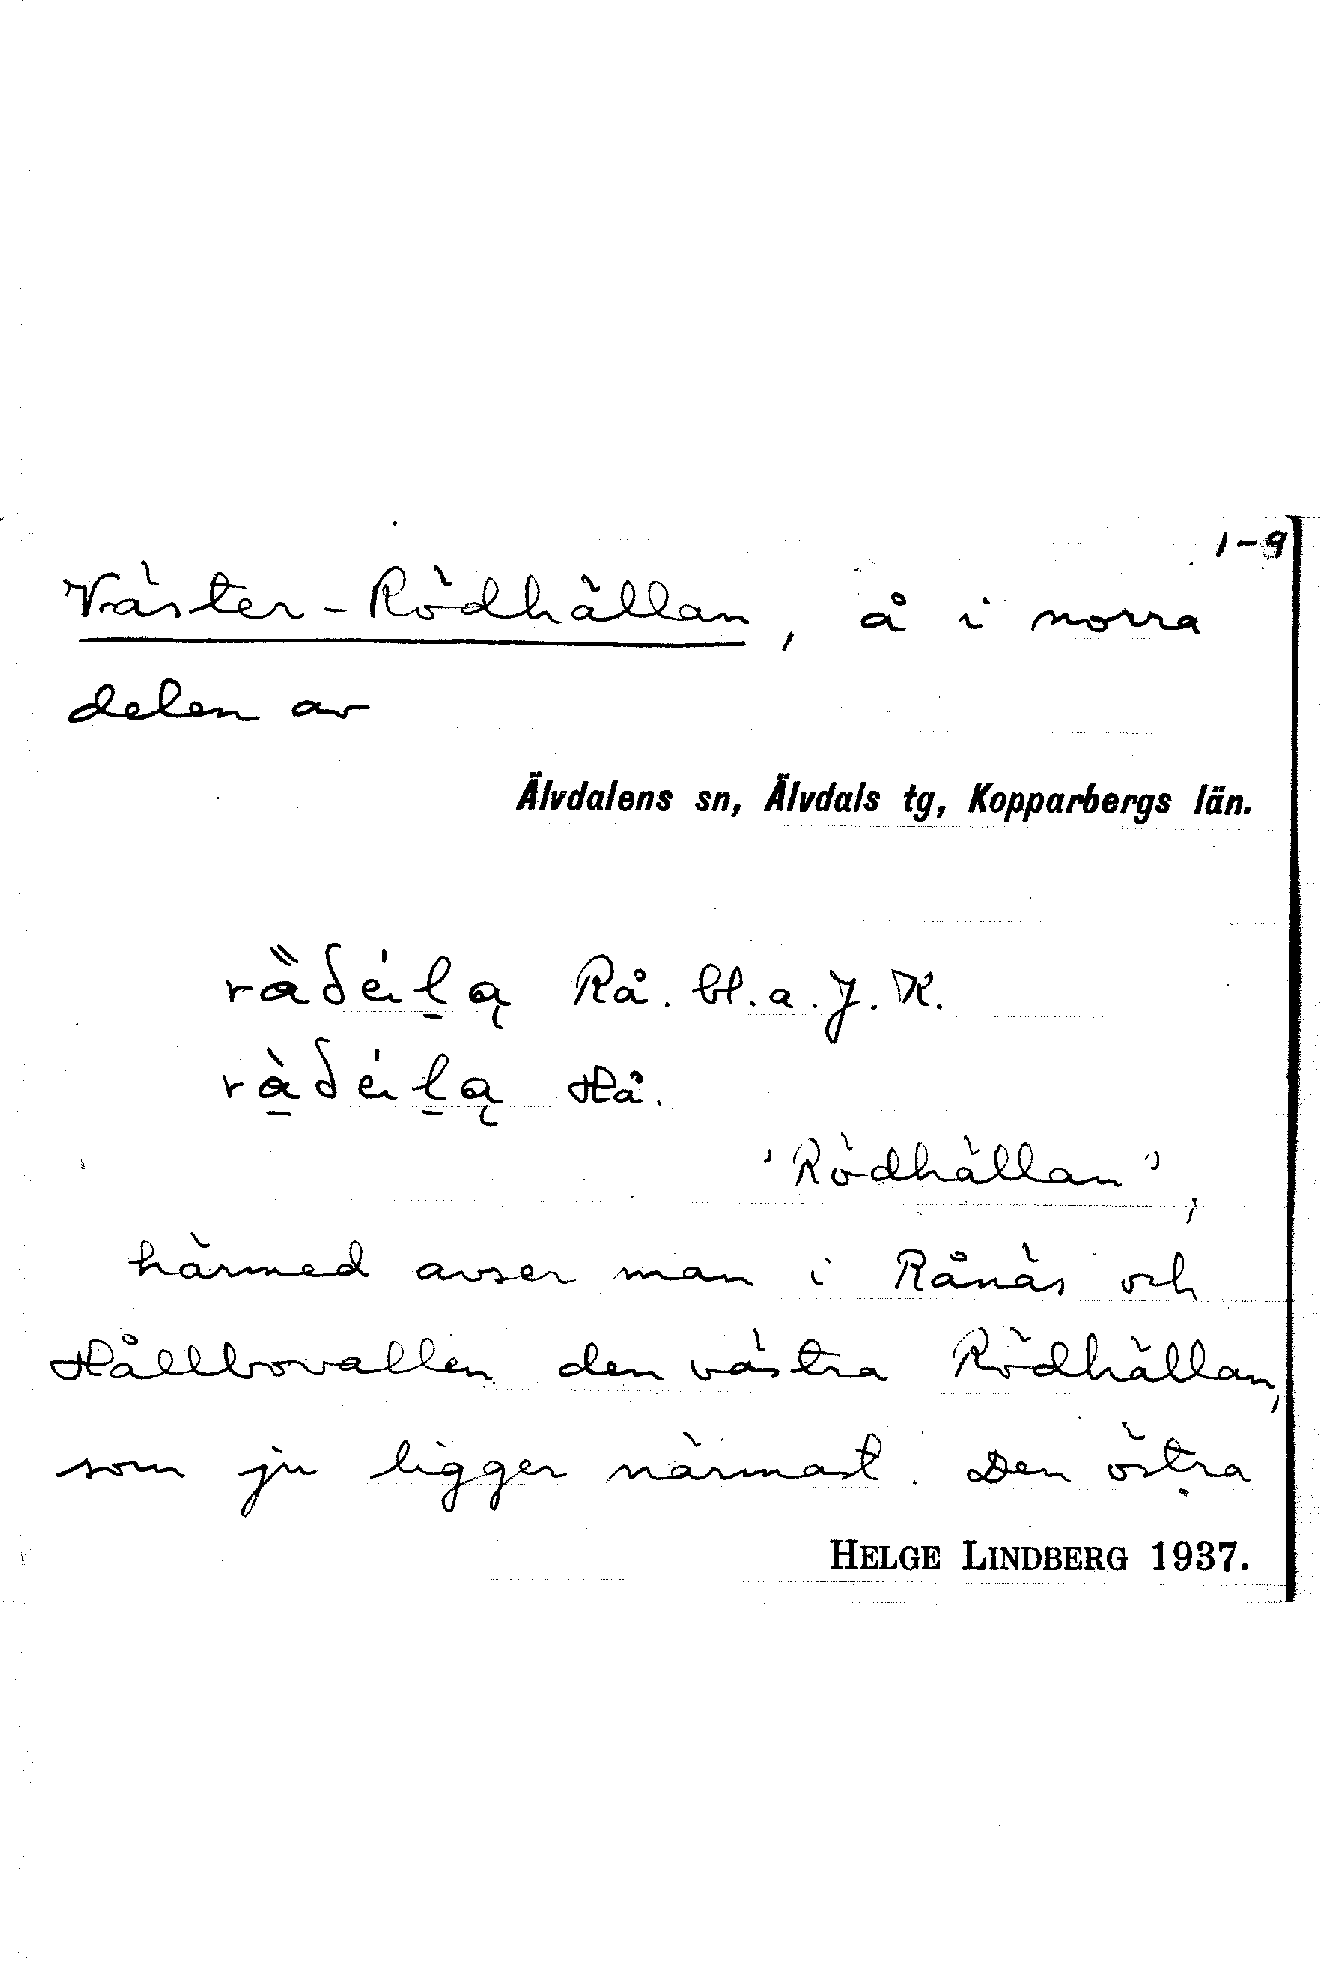 1-9
Väster-Rödhällan, å i norra
delen av
Älvdalens sn, Älvdals tg, Kopparbergs län.
Rå. bl.a. J. K.
Hå.
'Rödhällan',
härmed avser man i Rånäs och
Hållbovallen den västra Rödhällan,
som ju ligger närmast. Den östra
HELGE LINDBERG 1937.